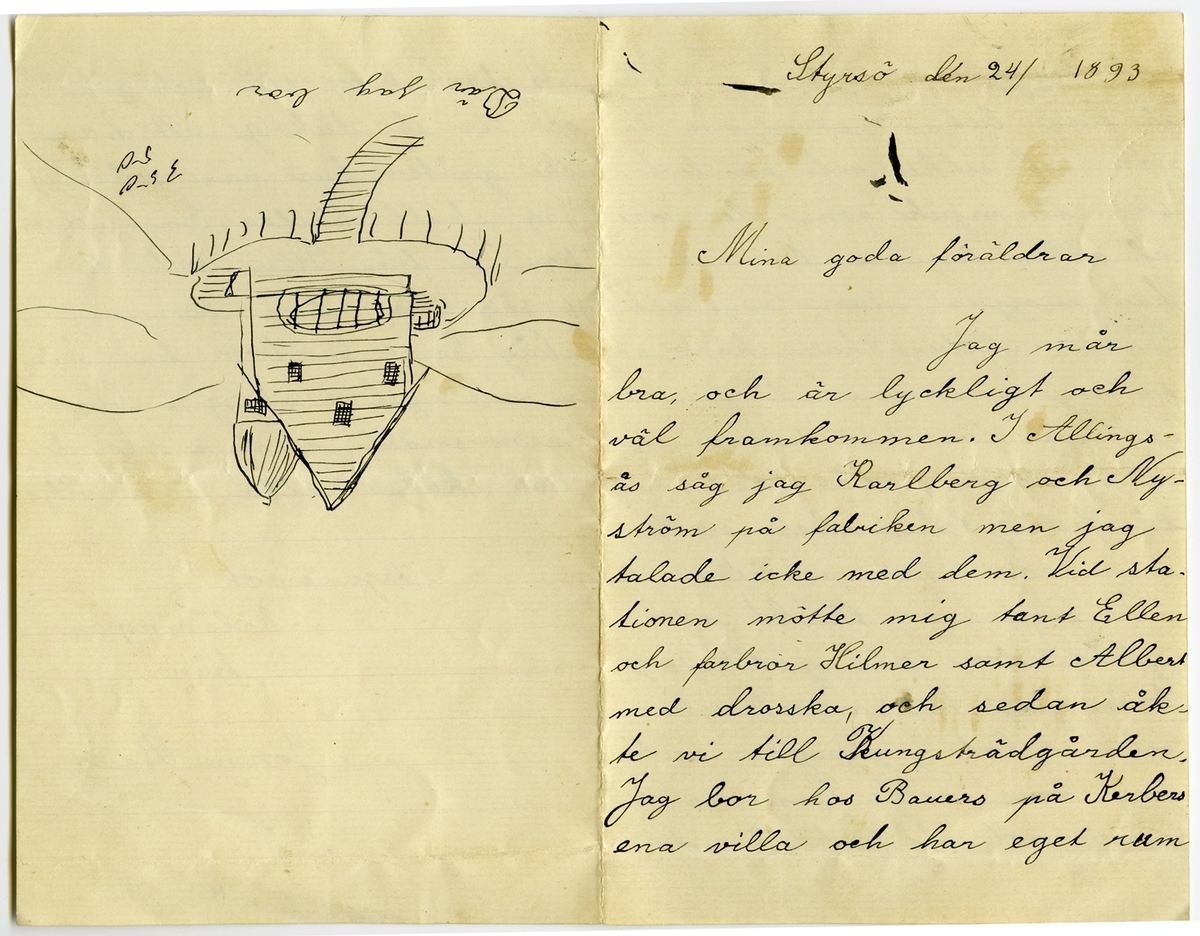 Där jag bor
Styrsö den 24/ 1893
Mina goda föräldrar
Jag mår
bra, och är lyckligt och
väl framkommen. I Allings-
ås såg jag Karlberg och Ny-
ström på fabriken men jag
talade icke med dem. Vid sta-
tionen mötte mig tant Ellen
och farbror Hilmer samt Albert
med drosska, och sedan åk-
te vi till Kungsträdgården.
Jag bor hos Bauers på Kerbers
ena villa och har eget rum